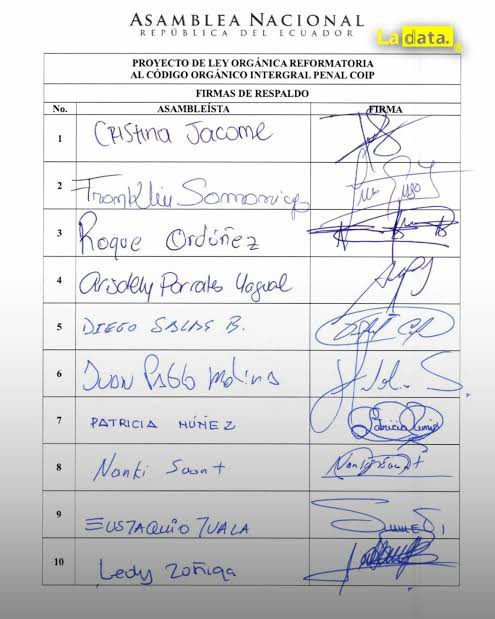 ASAMBLEA NACIONAL
REPÚBLICA DEL ECUADOR
La data.
PROYECTO DE LEY ORGÁNICA REFORMATORIA
AL CÓDIGO ORGÁNICO INTERGRAL PENAL COIP
FIRMAS DE RESPALDO
No. ASAMBLEÍSTA FIRMA
1 CRISTINA JACOME
2 Franklin Samaniego
3 Roque Ordóñez
4 Arisdely Parrales Yagual
5 DIEGO SALAS B.
6 JUAN PABLO Molina
7 PATRICIA NÚÑEZ Patricia Núñez
8 Nanki Saant Nanki Saant
9 EUSTAQUIO TUALA
10 Ledy Zúñiga